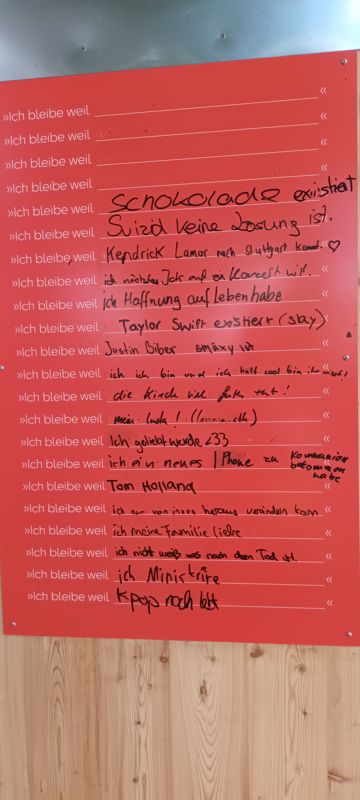 »Ich bleibe weil «
»Ich bleibe weil «
»Ich bleibe weil «
»Ich bleibe weil «
»Ich bleibe weil Schokolade exisistiert
»Ich bleibe weil Suizid keine Lösung ist.
»Ich bleibe weil Kendrick Lamar nach Stuttgart kommt. ♡
»Ich bleibe weil ich nächstes Jahr auf ein Konzert will. «
»Ich bleibe weil ich Hoffnung auf Leben habe «
»Ich bleibe weil Taylor Swift existiert (slay)
»Ich bleibe weil Justin Biber smäxy ist «
»Ich bleibe weil ich ich bin und ich halt cool bin
»Ich bleibe weil die Kirch viel gutes tut! «
»Ich bleibe weil mein «
»Ich bleibe weil Ich geliebt werde <33 «
»Ich bleibe weil ich ein neues I Phone zu Kommunion bekommen habe
»Ich bleibe weil Tom Holland «
»Ich bleibe weil ich nur von innen heraus verändern kann «
»Ich bleibe weil ich meine Familie liebe «
»Ich bleibe weil ich nicht weiß was nach dem Tod ist. «
»Ich bleibe weil ich Ministriere «
»Ich bleibe weil Kpop noch lebt «